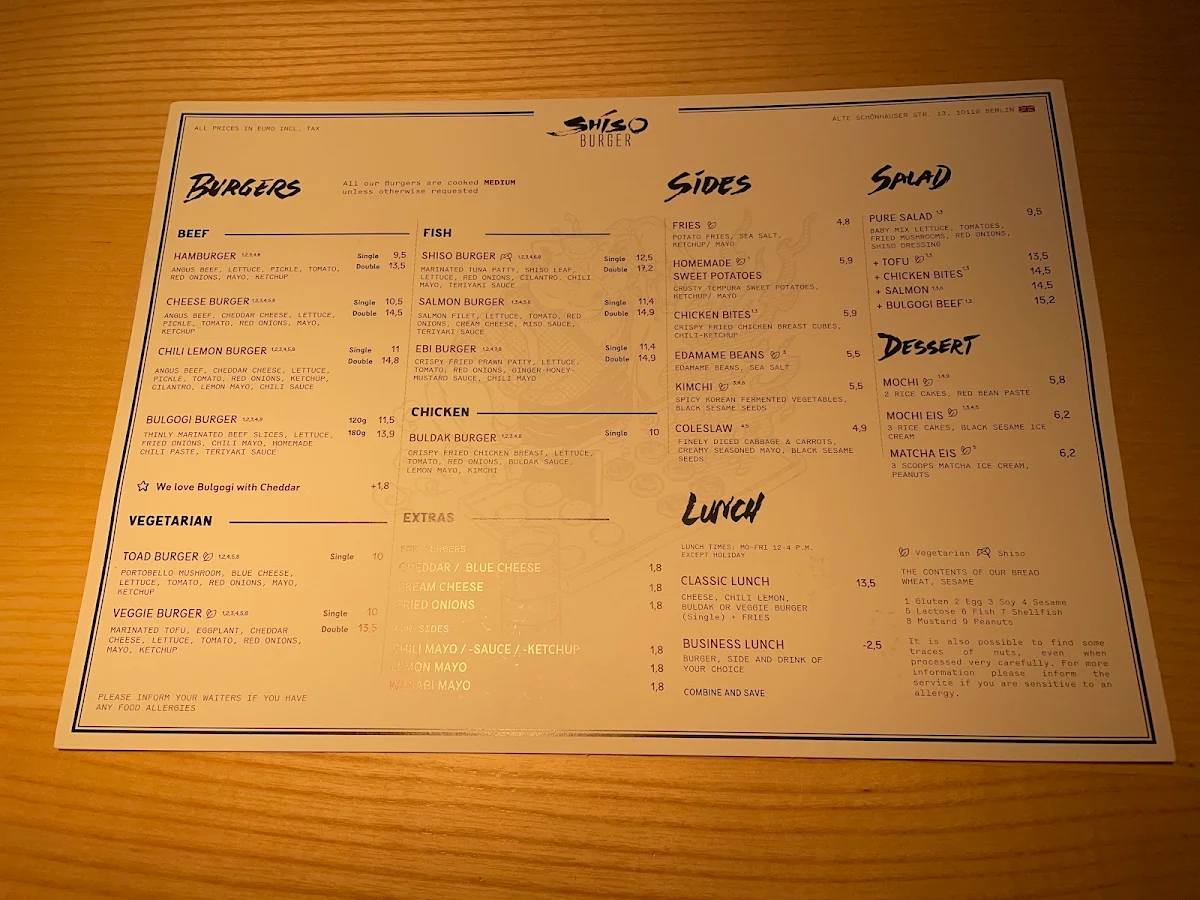 ALL PRICES IN EURO INCL. TAX
SHISO
BURGER
ALTE SCHÖNHAUSER STR. 13, 10119 BERLIN
BURGERS
All our Burgers are cooked MEDIUM
unless otherwise requested
BEEF
HAMBURGER 1,2,3,4,8 Single 9,5
Double 13,5
ANGUS BEEF, LETTUCE, PICKLE, TOMATO,
RED ONIONS, MAYO, KETCHUP
CHEESE BURGER 1,2,3,4,5,8 Single 10,5
Double 14,5
ANGUS BEEF, CHEDDAR CHEESE, LETTUCE,
PICKLE, TOMATO, RED ONIONS, MAYO,
KETCHUP
CHILI LEMON BURGER 1,2,3,4,5,8 Single 11
Double 14,8
ANGUS BEEF, CHEDDAR CHEESE, LETTUCE,
PICKLE, TOMATO, RED ONIONS, KETCHUP,
CILANTRO, LEMON MAYO, CHILI SAUCE
BULGOGI BURGER 1,2,3,4,8 120g 11,5
180g 13,9
THINLY MARINATED BEEF SLICES, LETTUCE,
FRIED ONIONS, CHILI MAYO, HOMEMADE
CHILI PASTE, TERIYAKI SAUCE
We love Bulgogi with Cheddar +1,8
VEGETARIAN
TOAD BURGER 1,2,4,5,8 Single 10
PORTOBELLO-MUSHROOM, BLUE CHEESE,
LETTUCE, TOMATO, RED ONIONS, MAYO,
KETCHUP
VEGGIE BURGER 1,2,3,4,5,8 Single 10
Double 13,5
MARINATED TOFU, EGGPLANT, CHEDDAR
CHEESE, LETTUCE, TOMATO, RED ONIONS,
MAYO, KETCHUP
PLEASE INFORM YOUR WAITERS IF YOU HAVE
ANY FOOD ALLERGIES
FISH
SHISO BURGER 1,2,3,4,6,8 Single 12,5
Double 17,2
MARINATED TUNA PATTY, SHISO LEAF,
LETTUCE, RED ONIONS, CILANTRO, CHILI
MAYO, TERIYAKI SAUCE
SALMON BURGER 1,3,4,5,6 Single 11,4
Double 14,9
SALMON FILET, LETTUCE, TOMATO, RED
ONIONS, CREAM CHEESE, MISO SAUCE,
TERIYAKI SAUCE
EBI BURGER 1,2,4,7,8 Single 11,4
Double 14,9
CRISPY-FRIED PRAWN PATTY, LETTUCE,
TOMATO, RED ONIONS, GINGER-HONEY-
MUSTARD SAUCE, CHILI MAYO
CHICKEN
BULDAK BURGER 1,2,3,4,6,8 Single 10
CRISPY FRIED CHICKEN BREAST, LETTUCE,
TOMATO, RED ONIONS, BULDAK SAUCE,
LEMON MAYO, KIMCHI
EXTRAS
FOR BURGERS
CHEDDAR / BLUE CHEESE 1,8
CREAM CHEESE 1,8
FRIED ONIONS 1,8
FOR SIDES
CHILI MAYO / -SAUCE / -KETCHUP 1,8
LEMON MAYO 1,8
WASABI MAYO 1,8
SIDES
FRIES 4,8
POTATO FRIES, SEA SALT,
KETCHUP/ MAYO
HOMEMADE 1 5,9
SWEET POTATOES
CRUSTY TEMPURA SWEET POTATOES,
KETCHUP/ MAYO
CHICKEN BITES 1,3 5,9
CRISPY FRIED CHICKEN BREAST CUBES,
CHILI-KETCHUP
EDAMAME BEANS 3 5,5
EDAMAME BEANS, SEA SALT
KIMCHI 3,4,6 5,5
SPICY KOREAN FERMENTED VEGETABLES,
BLACK SESAME SEEDS
COLESLAW 4,5 4,9
FINELY DICED CABBAGE & CARROTS,
CREAMY SEASONED MAYO, BLACK SESAME
SEEDS
LUNCH
LUNCH TIMES: MO-FRI 12-4 P.M.
EXCEPT HOLIDAY
CLASSIC LUNCH 13,5
CHEESE, CHILI LEMON,
BULDAK OR VEGGIE BURGER
(Single) + FRIES
BUSINESS LUNCH -2,5
BURGER, SIDE AND DRINK OF
YOUR CHOICE
COMBINE AND SAVE
SALAD
PURE SALAD 1,3 9,5
BABY MIX LETTUCE, TOMATOES,
FRIED MUSHROOMS, RED ONIONS,
SHISO DRESSING
+ TOFU 1,3 13,5
+ CHICKEN BITES 1,3 14,5
+ SALMON 1,3,6 14,5
+ BULGOGI BEEF 1,3 15,2
DESSERT
MOCHI 1,4,9 5,8
2 RICE CAKES, RED BEAN PASTE
MOCHI EIS 1,3,4,5 6,2
3 RICE CAKES, BLACK SESAME ICE
CREAM
MATCHA EIS 5 6,2
3 SCOOPS MATCHA ICE CREAM,
PEANUTS
Vegetarian Shiso
THE CONTENTS OF OUR BREAD
WHEAT, SESAME
1 Gluten 2 Egg 3 Soy 4 Sesame
5 Lactose 6 Fish 7 Shellfish
8 Mustard 9 Peanuts
It is also possible to find some
traces of nuts, even when
processed very carefully. For more
information please inform the
service if you are sensitive to an
allergy.